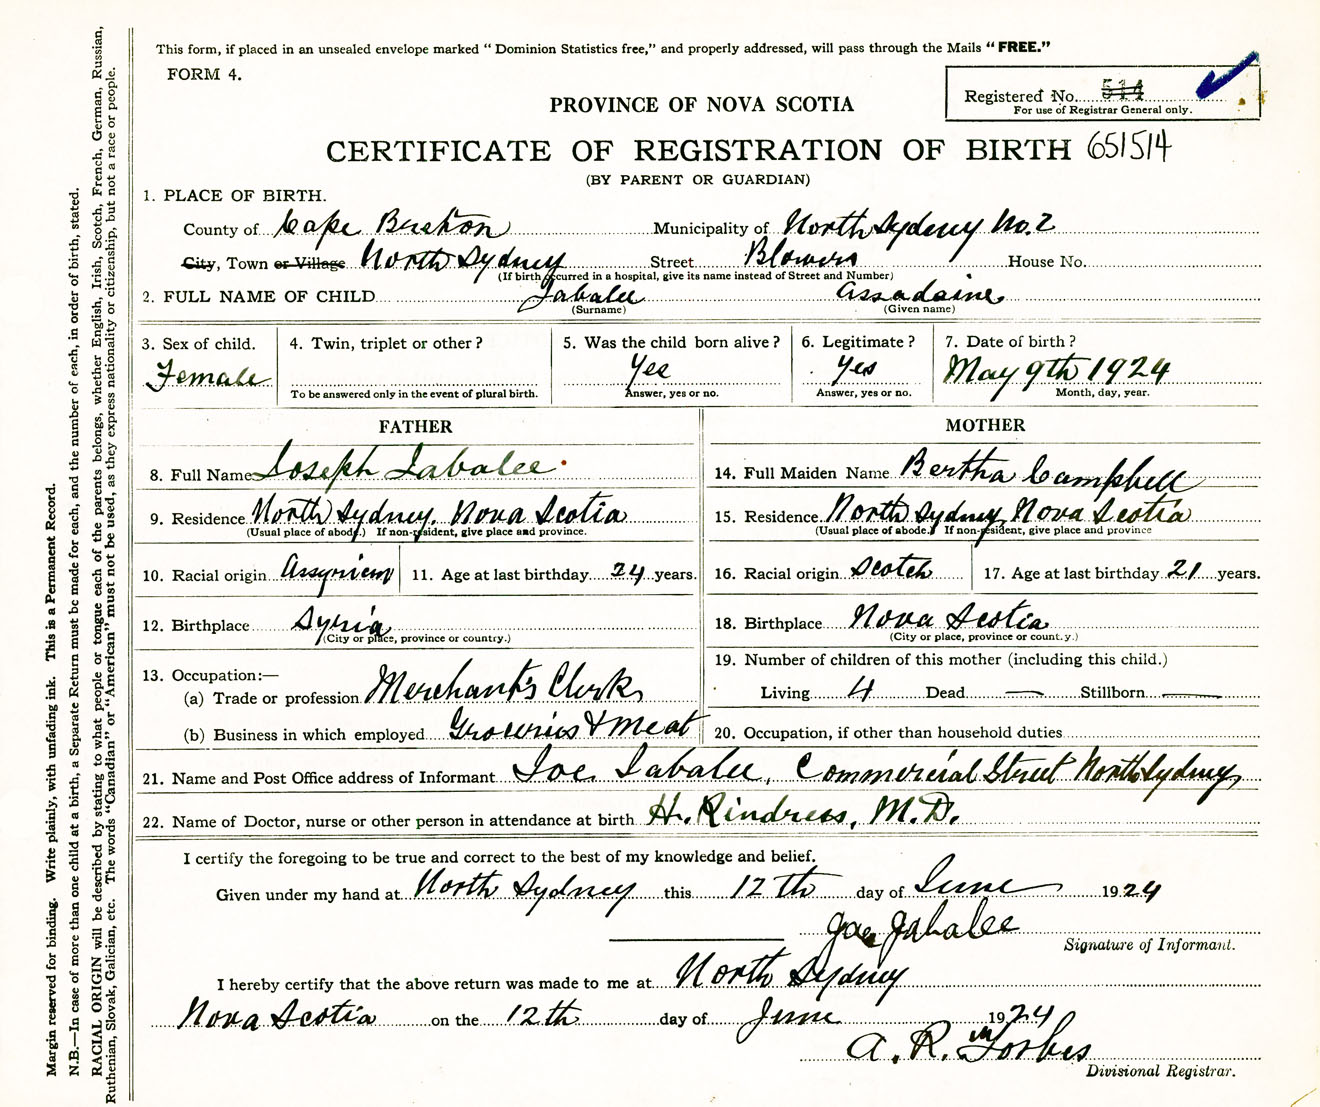 This form, if placed in an unsealed envelope marked "Dominion Statistics free," and properly addressed, will pass through the Mails "FREE."
FORM 4.
Registered No. 514
For use of Registrar General only.
PROVINCE OF NOVA SCOTIA
CERTIFICATE OF REGISTRATION OF BIRTH 651514
(BY PARENT OR GUARDIAN)
1. PLACE OF BIRTH.
County of Cape Breton Municipality of North Sydney No. 2
City, Town or Village North Sydney Street Blowers House No.
(If birth occurred in a hospital, give its name instead of Street and Number)
2. FULL NAME OF CHILD Jabalee Assadaine
(Surname) (Given name)
3. Sex of child. 4. Twin, triplet or other? 5. Was the child born alive? 6. Legitimate? 7. Date of birth?
Female Yes Yes May 9th 1924
To be answered only in the event of plural birth. Answer, yes or no. Answer, yes or no. Month, day, year.
FATHER
8. Full Name Joseph Jabalee
9. Residence North Sydney, Nova Scotia
(Usual place of abode.) If non-resident, give place and province.
10. Racial origin Assyrian 11. Age at last birthday 24 years.
12. Birthplace Syria
(City or place, province or country.)
13. Occupation:—
(a) Trade or profession Merchant's Clerk
(b) Business in which employed Groceries & Meat
MOTHER
14. Full Maiden Name Bertha Campbell
15. Residence North Sydney, Nova Scotia
(Usual place of abode.) If non-resident, give place and province
16. Racial origin Scotch 17. Age at last birthday 21 years.
18. Birthplace Nova Scotia
(City or place, province or count.y.)
19. Number of children of this mother (including this child.)
Living 4 Dead — Stillborn —
20. Occupation, if other than household duties
21. Name and Post Office address of Informant Joe Jabalee, Commercial Street North Sydney
22. Name of Doctor, nurse or other person in attendance at birth H. Rindress, M.D.
I certify the foregoing to be true and correct to the best of my knowledge and belief.
Given under my hand at North Sydney this 12th day of June 1924
Joe Jabalee
Signature of Informant.
I hereby certify that the above return was made to me at North Sydney
Nova Scotia on the 12th day of June 1924
A. R. Forbes
Divisional Registrar.
Margin reserved for binding. Write plainly, with unfading ink. This is a Permanent Record.
N.B.—In case of more than one child at a birth, a Separate Return must be made for each, and the number of each, in order of birth, stated.
RACIAL ORIGIN will be described by stating to what people or tongue each of the parents belongs, whether English, Irish, Scotch, French, German, Russian,
Ruthenian, Slovak, Galician, etc. The words "Canadian" or "American" must not be used, as they express nationality or citizenship, but not a race or people.